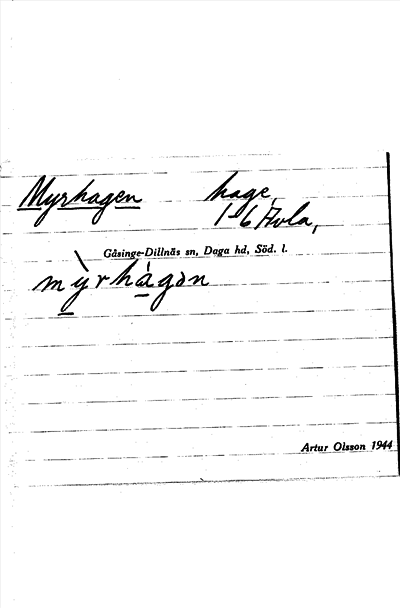 Myrhagen hage,
1-6 Avla,
Gåsinge-Dillnäs sn, Daga hd, Söd. l.
mỳrhàgən
Artur Olsson 1944